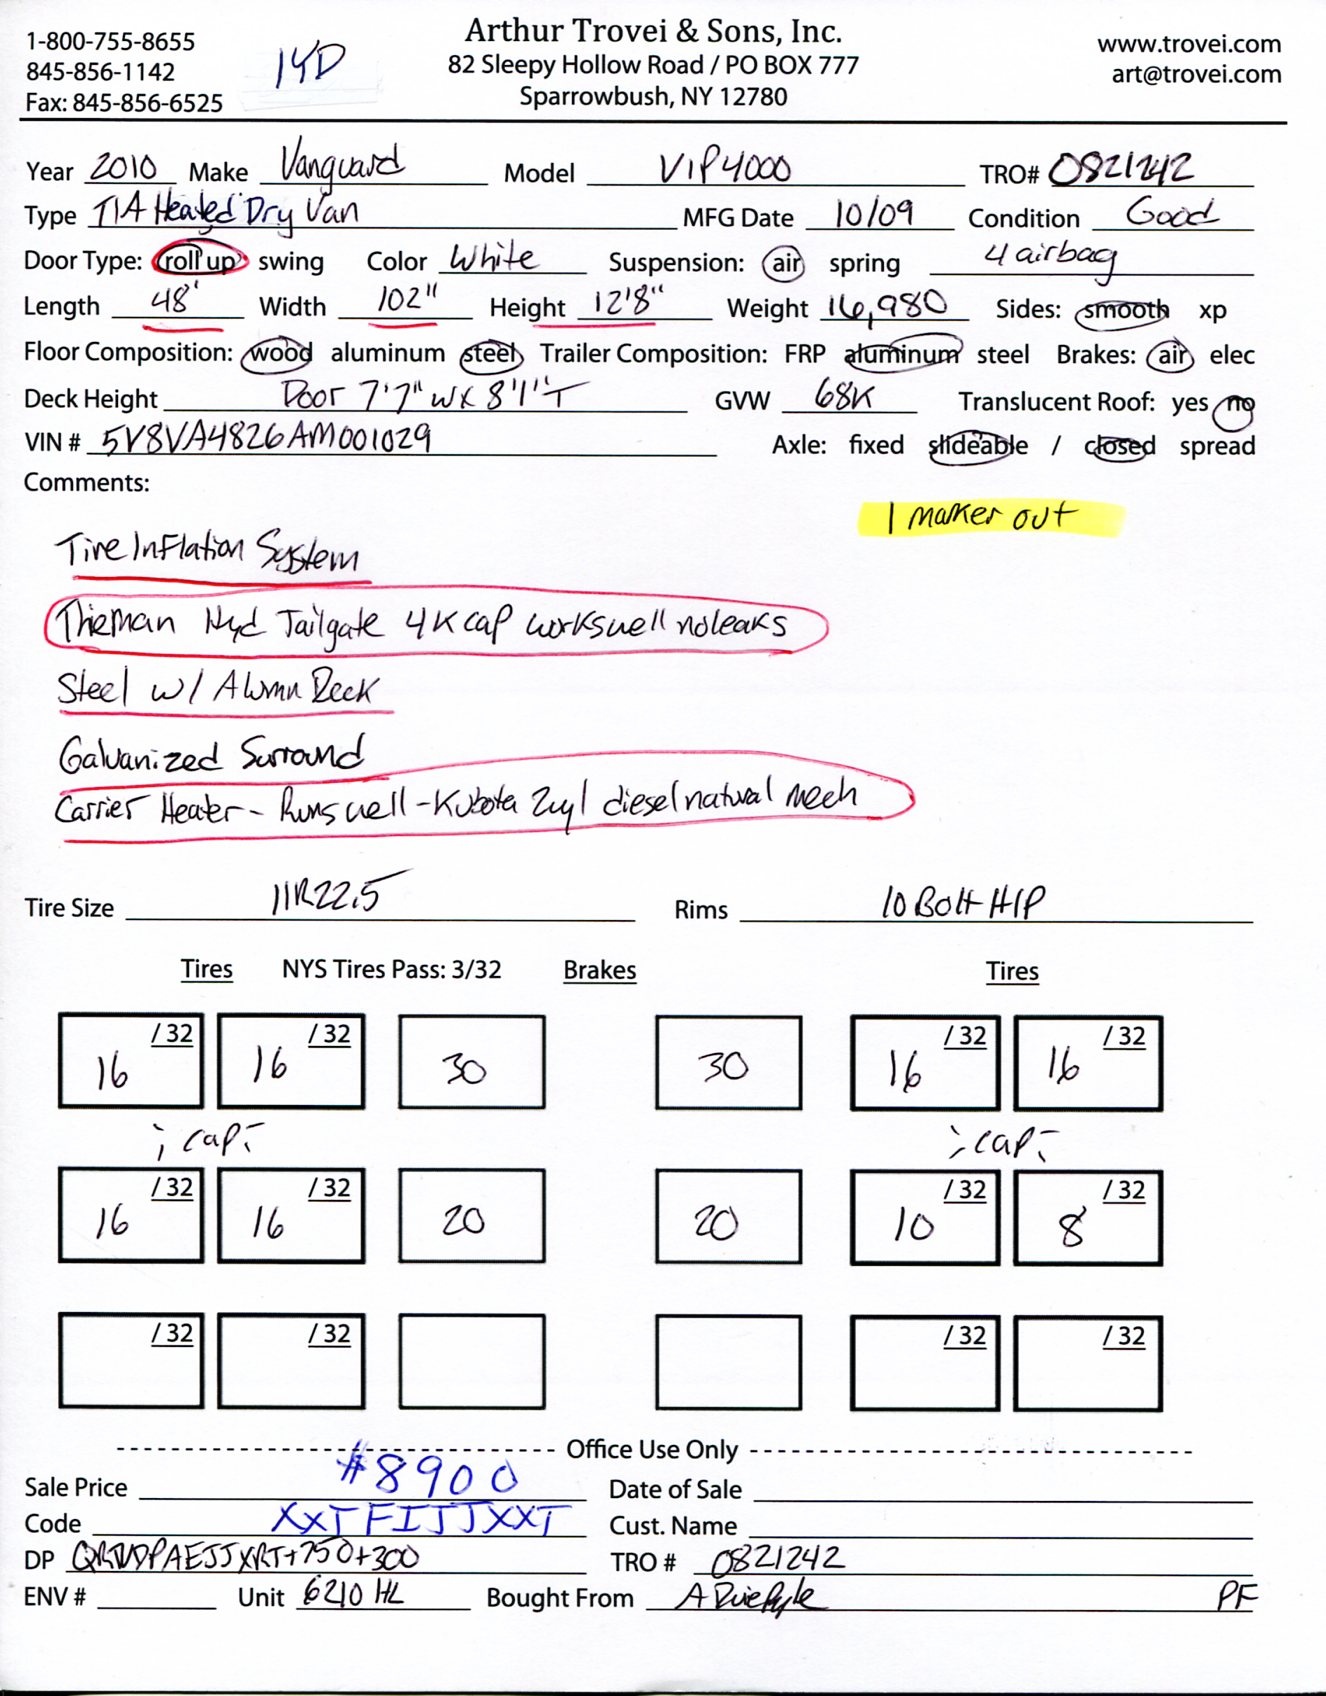 1-800-755-8655
845-856-1142
Fax: 845-856-6525
14D
Arthur Trovei & Sons, Inc.
82 Sleepy Hollow Road / PO BOX 777
Sparrowbush, NY 12780
www.trovei.com
art@trovei.com
Year 2010 Make Vanguard Model VIP4000 TRO# 0821242
Type T/A Heated Dry Van MFG Date 10/09 Condition Good
Door Type: roll up swing Color White Suspension: air spring 4 airbag
Length 48' Width 102" Height 12'8" Weight 16,980 Sides: smooth xp
Floor Composition: wood aluminum steel Trailer Composition: FRP aluminum steel Brakes: air elec
Deck Height Door 7'7"W x 8'1"T GVW 68K Translucent Roof: yes no
VIN # 5V8VA4826AM001029 Axle: fixed slideable / closed spread
Comments:
1 marker out
Tire Inflation System
Thieman Hyd Tailgate 4K cap works well no leaks
Steel w/ Alumn Deck
Galvanized Surround
Carrier Heater - Runs well - Kubota 2cyl diesel natural mech
Tire Size 11R22.5 Rims 10 Bolt H/P
Tires NYS Tires Pass: 3/32 Brakes Tires
16 /32 16 /32 30 30 16 /32 16 /32
cap cap
16 /32 16 /32 20 20 10 /32 8 /32
/32 /32 /32 /32
Office Use Only
Sale Price $8900 Date of Sale
Code XXTFIJJXXT Cust. Name
DP +750+300 TRO # 0821242
ENV # Unit 6210 HL Bought From PF